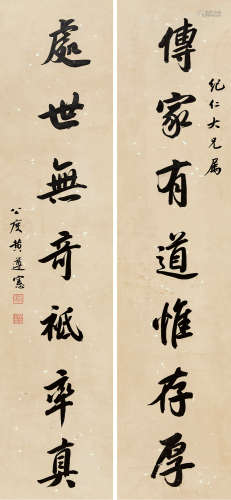 紀仁大兄屬
傳家有道惟存厚
處世無奇祗率真
公度黃遵憲